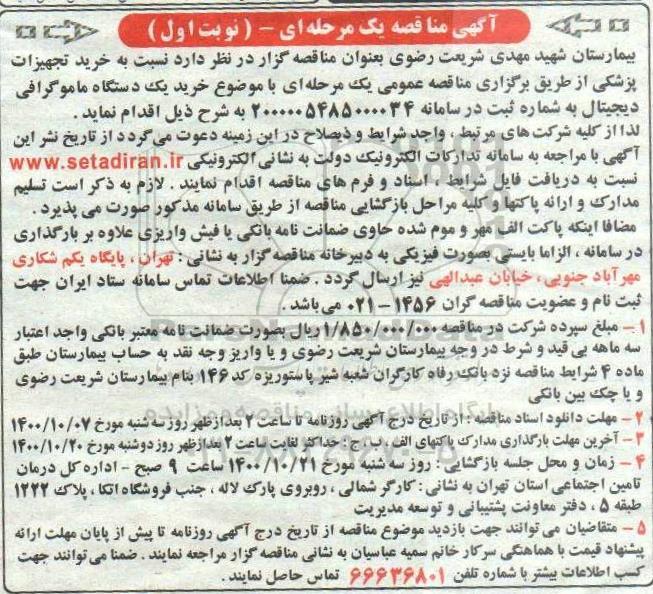 آگهی مناقصه یک مرحله ای - ( نوبت اول )
بیمارستان شهید مهدی شریعت رضوی بعنوان مناقصه گزار در نظر دارد نسبت به خرید تجهیزات
پزشکی از طریق برگزاری مناقصه عمومی یک مرحله ای با موضوع خرید یک دستگاه ماموگرافی
دیجیتال به شماره ثبت در سامانه ۲۰۰۰۰۰۵۴۸۵۰۰۰۰۳۴ به شرح ذیل اقدام نماید .
لذا از کلیه شرکت های مرتبط ، واجد شرایط و ذیصلاح در این زمینه دعوت می گردد از تاریخ نشر این
آگهی با مراجعه به سامانه تدارکات الکترونیک دولت به نشانی الکترونیکی www.setadiran.ir
نسبت به دریافت فایل شرایط ، اسناد و فرم های مناقصه اقدام نمایند . لازم به ذکر است تسلیم
مدارک و ارائه پاکتها و کلیه مراحل بازگشایی مناقصه از طریق سامانه مذکور صورت می پذیرد .
مضافا اینکه پاکت الف مهر و موم شده حاوی ضمانت نامه بانکی یا فیش واریزی علاوه بر بارگذاری
در سامانه ، الزاما بایستی بصورت فیزیکی به دبیرخانه مناقصه گزار به نشانی : تهران ، پایگاه یکم شکاری
مهرآباد جنوبی ، خیابان عبدالهی نیز ارسال گردد . ضمنا اطلاعات تماس سامانه ستاد ایران جهت
ثبت نام و عضویت مناقصه گران ۱۴۵۶-۰۲۱ می باشد .
۱ - مبلغ سپرده شرکت در مناقصه ۱/۸۵۰/۰۰۰/۰۰۰ ریال بصورت ضمانت نامه معتبر بانکی واجد اعتبار
سه ماهه بی قید و شرط در وجه بیمارستان شریعت رضوی و یا واریز وجه نقد به حساب بیمارستان طبق
ماده ۴ شرایط مناقصه نزد بانک رفاه کارگران شعبه شیر پاستوریزه کد ۱۴۶ بنام بیمارستان شریعت رضوی
و یا چک بین بانکی
۲ - مهلت دانلود اسناد مناقصه : از تاریخ درج آگهی روزنامه تا ساعت ۲ بعدازظهر روز سه شنبه مورخ ۱۴۰۰/۱۰/۰۷
۳ - آخرین مهلت بارگذاری مدارک پاکتهای الف ، ب ، ج : حداکثر لغایت ساعت ۲ بعدازظهر روز دوشنبه مورخ ۱۴۰۰/۱۰/۲۰
۴ - زمان و محل جلسه بازگشایی : روز سه شنبه مورخ ۱۴۰۰/۱۰/۲۱ ساعت ۹ صبح - اداره کل درمان
تامین اجتماعی استان تهران به نشانی : کارگر شمالی ، روبروی پارک لاله ، جنب فروشگاه اتکا ، پلاک ۱۲۲۲
طبقه ۵ ، دفتر معاونت پشتیبانی و توسعه مدیریت
۵ - متقاضیان می توانند جهت بازدید موضوع مناقصه از تاریخ درج آگهی روزنامه تا پیش از پایان مهلت ارائه
پیشنهاد قیمت با هماهنگی سرکار خانم سمیه عباسیان به نشانی مناقصه گزار مراجعه نمایند . ضمنا می توانند جهت
کسب اطلاعات بیشتر با شماره تلفن ۶۶۶۳۶۸۰۱ تماس حاصل نمایند .